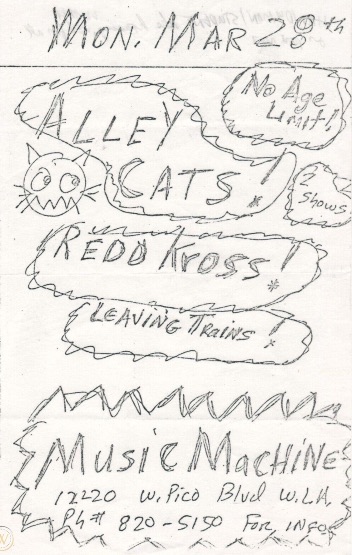 Mon. Mar 28th
No Age
Limit!
Alley
Cats!
2
Shows
Redd Kross!
Leaving Trains!
Music Machine
12220 W. Pico Blvd W.L.A.
Ph# 820-5150 For info